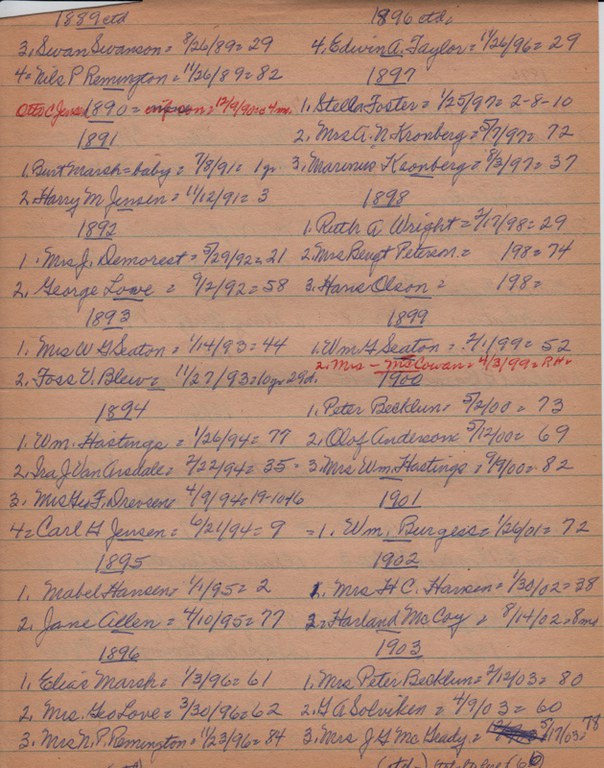 1889 ctd
3. Swan Swanson = 8/26/89 = 29
4 = Nils P Remington = 11/26/89 = 82
Otto C Jensen 1890 = 12/9/90 = 4 mo.
1891
1. Burt Marsh = baby = 7/8/91 = 1 yr
2. Harry M Jensen = 11/12/91 = 3
1892
1. Mrs J. Demorest = 5/29/92 = 21
2. George Lowe = 9/2/92 = 58
1893
1. Mrs W G Seaton = 1/14/93 = 44
2. Foss V. Blew = 11/27/93 = 10 yr 29d.
1894
1. Wm. Hastings = 1/26/94 = 77
2. Ira J Van Arsdale = 2/22/94 = 35 =
3. Mrs Geo F. Drevsen = 4/9/94 = 19-10-16
4 = Carl H Jensen = 6/21/94 = 9
1895
1. Mabel Hansen = 1/1/95 = 2
2. Jane Allen = 4/10/95 = 77
1896
1. Elias Marsh = 1/3/96 = 61
2. Mrs. Geo Love = 3/30/96 = 62
3. Mrs N. P. Remington = 11/23/96 = 84
1896 ctd.
4. Edwin A. Taylor = 11/26/96 = 29
1897
1. Stella Foster = 1/25/97 = 2-8-10
2. Mrs A. N Kronberg = 5/7/97 = 72
3. Marinus Kronberg = 8/3/97 = 37
1898
1. Ruth A Wright = 2/17/98 = 29
2. Mrs Bengt Peterson = 198 = 74
3. Hans Olson = 198 =
1899
1. Wm G Seaton = 2/1/99 = 52
2. Mrs - McCowan = 4/3/99 = R.H.
1900
1. Peter Becklun = 5/2/00 = 73
2. Olof Anderson = 5/12/00 = 69
3. Mrs Wm. Hastings = 9/9/00 = 82
1901
= 1. Wm. Burgess = 1/26/01 = 72
1902
1. Mrs H C. Hansen = 1/30/02 = 38
2 = Harland McCoy = 8/14/02 = 8 mo
1903
1. Mrs Peter Becklun = 2/12/03 = 80
2. G A Solviken = 4/9/03 = 60
3. Mrs J G McGrady = 5/17/03 = 78